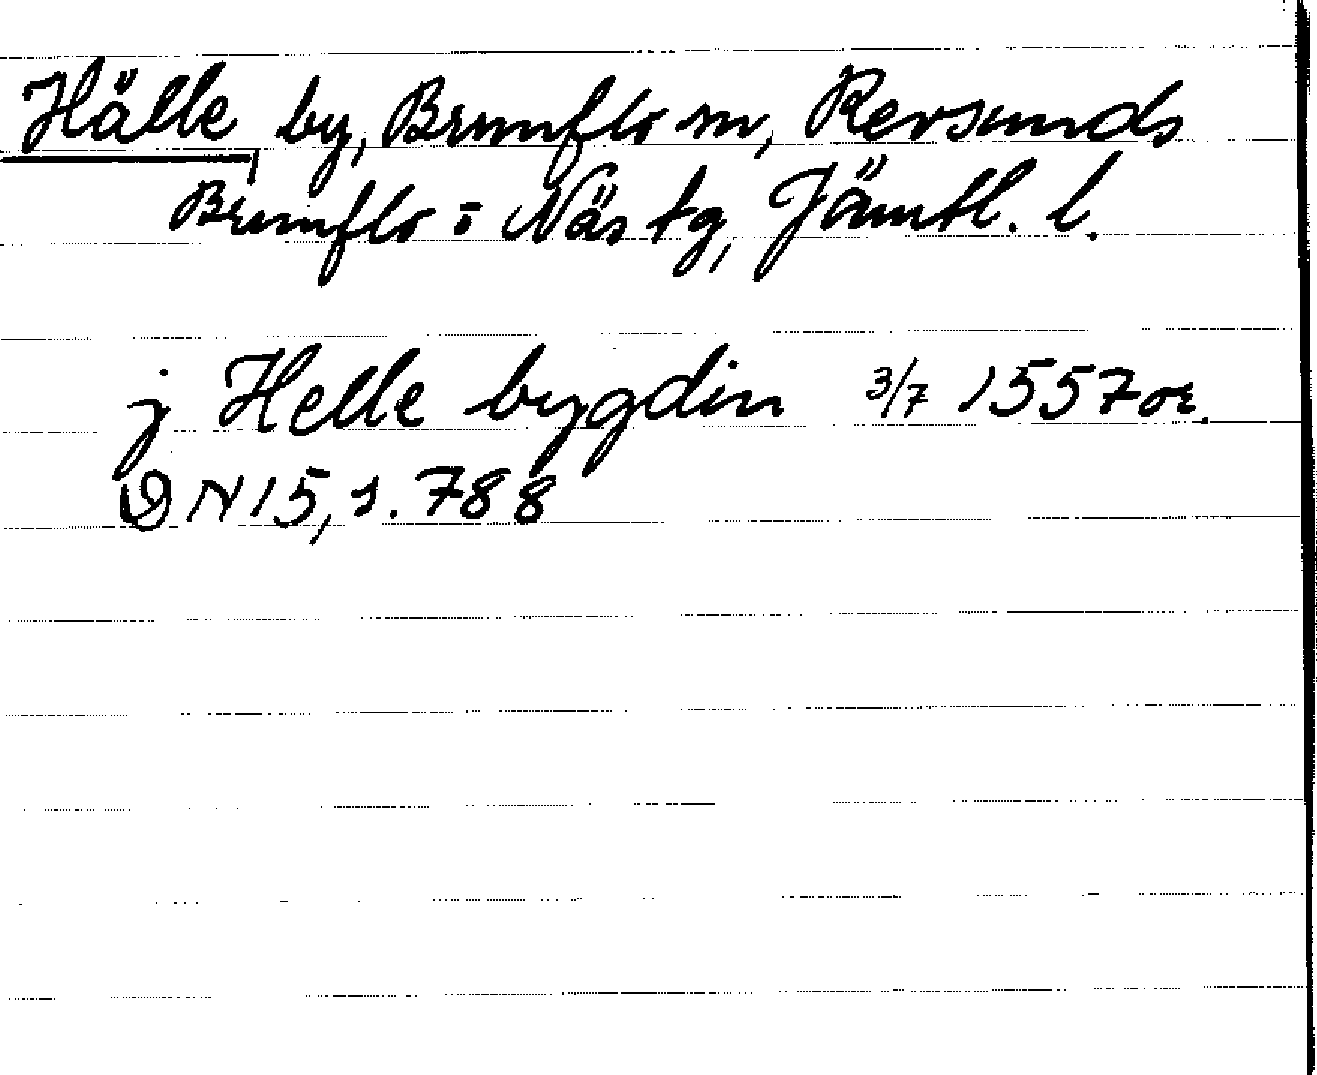 Hälle by, Brunflo sn, Revsunds
Brunflo o Näs tg, Jämtl. l.
j Helle bygdin 3/7 1557 or.
DN 15, s. 788